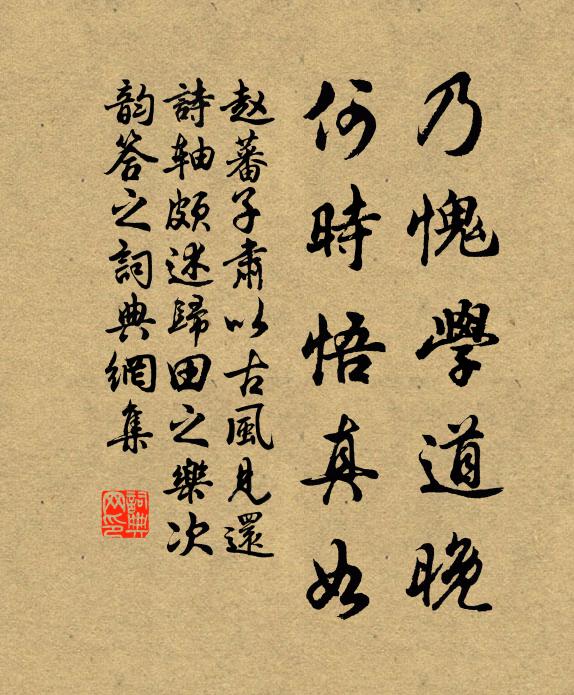 乃愧學道晚
何時悟真如
赵蕃子肅以古風見還
詩軸頗述歸田之樂次
韵答之詞典網集
詞典
网印